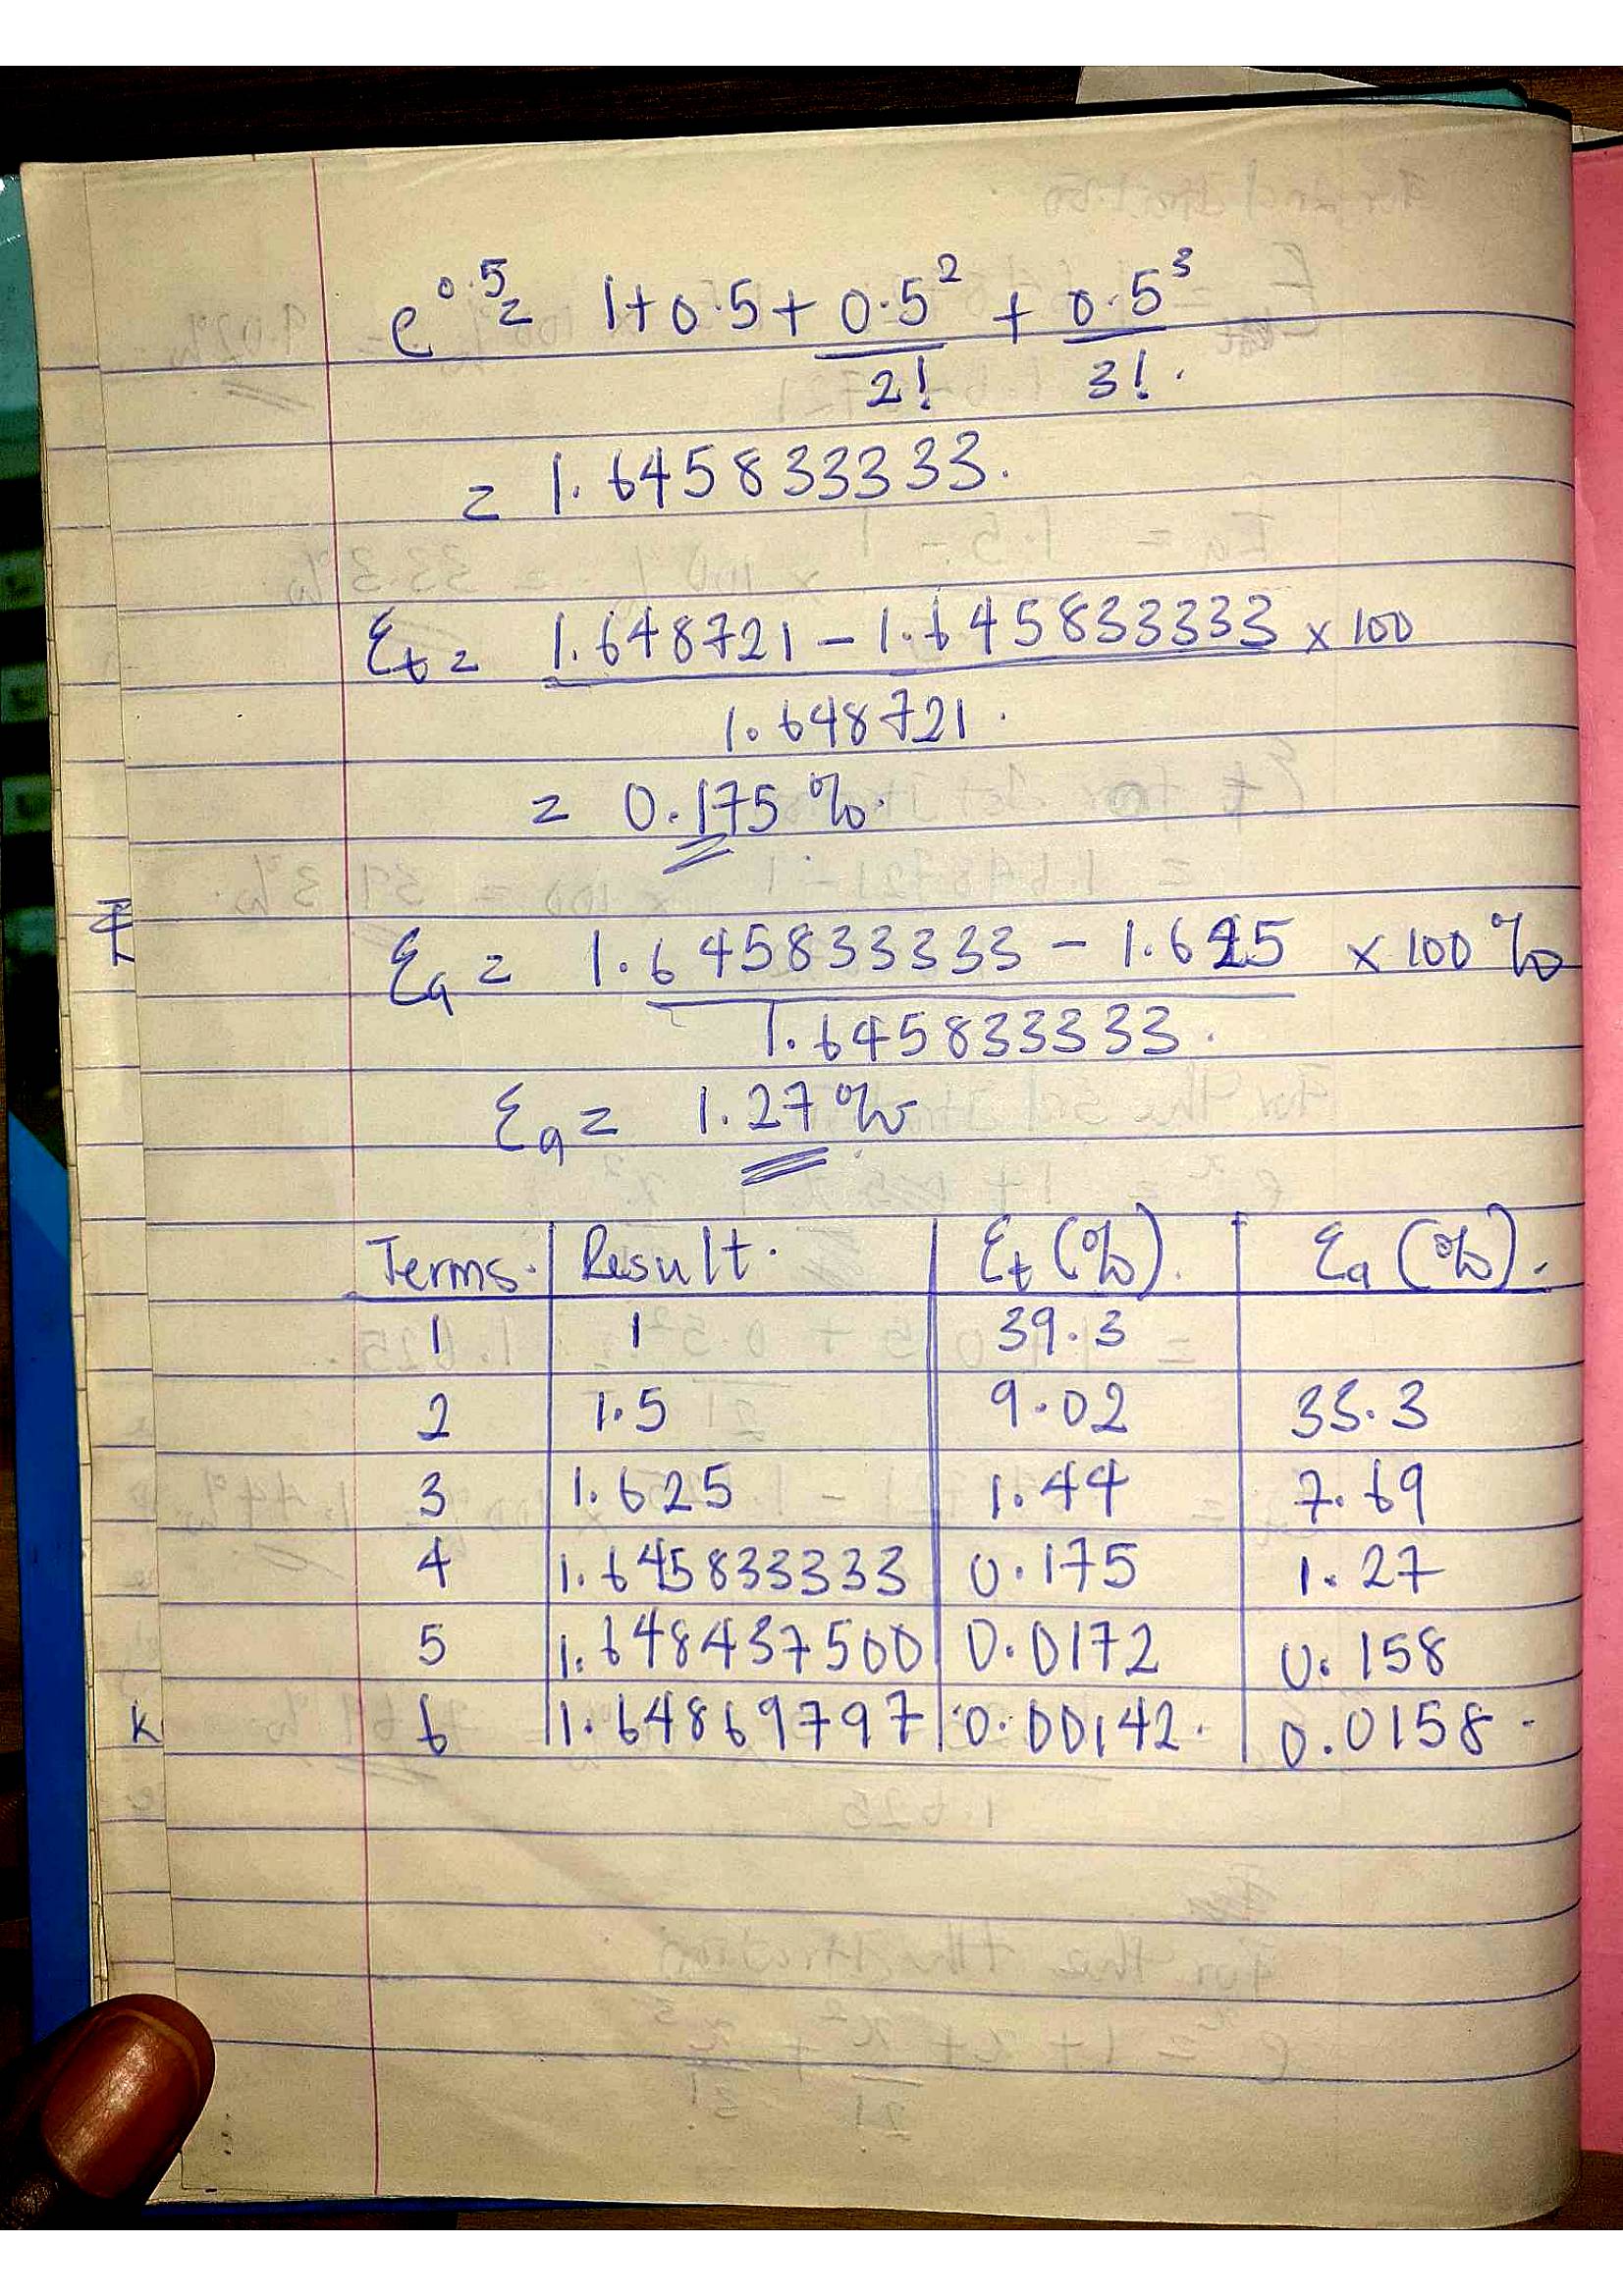 e^0.5 = 1+0.5+ 0.5^2/2! + 0.5^3/3!.
= 1.645833333.
Ɛt = (1.648721 – 1.645833333)/1.648721. × 100
= 0.175 %.
Ɛa = (1.645833333 – 1.625)/1.645833333. × 100 %
Ɛa = 1.27 %
Terms. | Result. | Ɛt (%). | Ɛa (%).
1 | 1 | 39.3 |
2 | 1.5 | 9.02 | 33.3
3 | 1.625 | 1.44 | 7.69
4 | 1.645833333 | 0.175 | 1.27
5 | 1.648437500 | 0.0172 | 0.158
K
6 | 1.64869797 | 0.00142. | 0.0158.